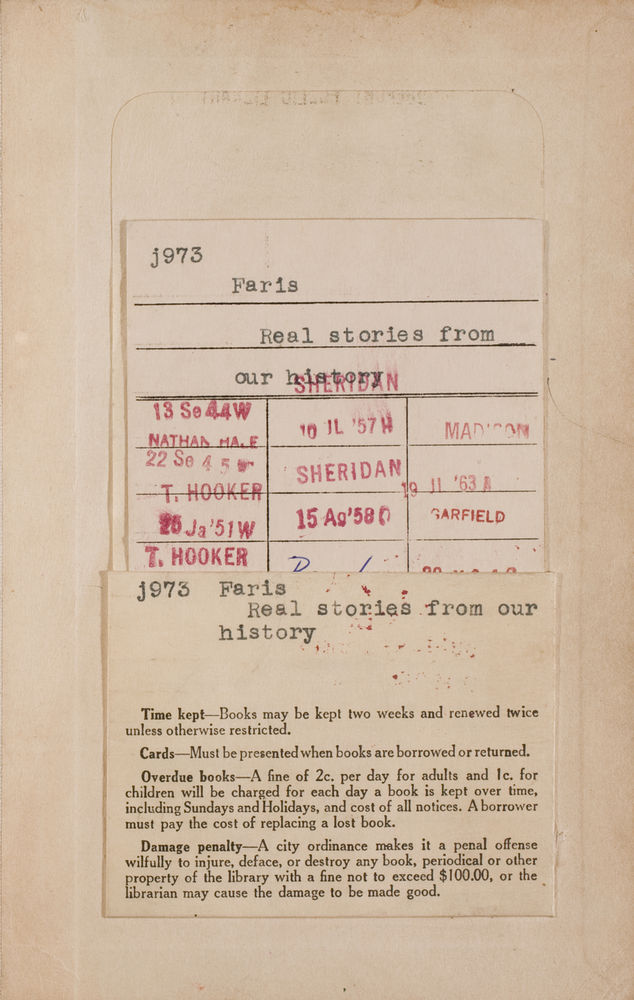 j973
Faris
Real stories from
our history
SHERIDAN
13 Se 44W
10 JL '57 W
MADISON
NATHAN HALE
22 Se 45 W
SHERIDAN
T. HOOKER
19 J1 '63 A
25 Ja '51 W
15 Ag '58
GARFIELD
T. HOOKER
j973 Faris
Real stories from our
history
Time kept—Books may be kept two weeks and renewed twice
unless otherwise restricted.
Cards—Must be presented when books are borrowed or returned.
Overdue books—A fine of 2c. per day for adults and 1c. for
children will be charged for each day a book is kept over time,
including Sundays and Holidays, and cost of all notices. A borrower
must pay the cost of replacing a lost book.
Damage penalty—A city ordinance makes it a penal offense
wilfully to injure, deface, or destroy any book, periodical or other
property of the library with a fine not to exceed $100.00, or the
librarian may cause the damage to be made good.